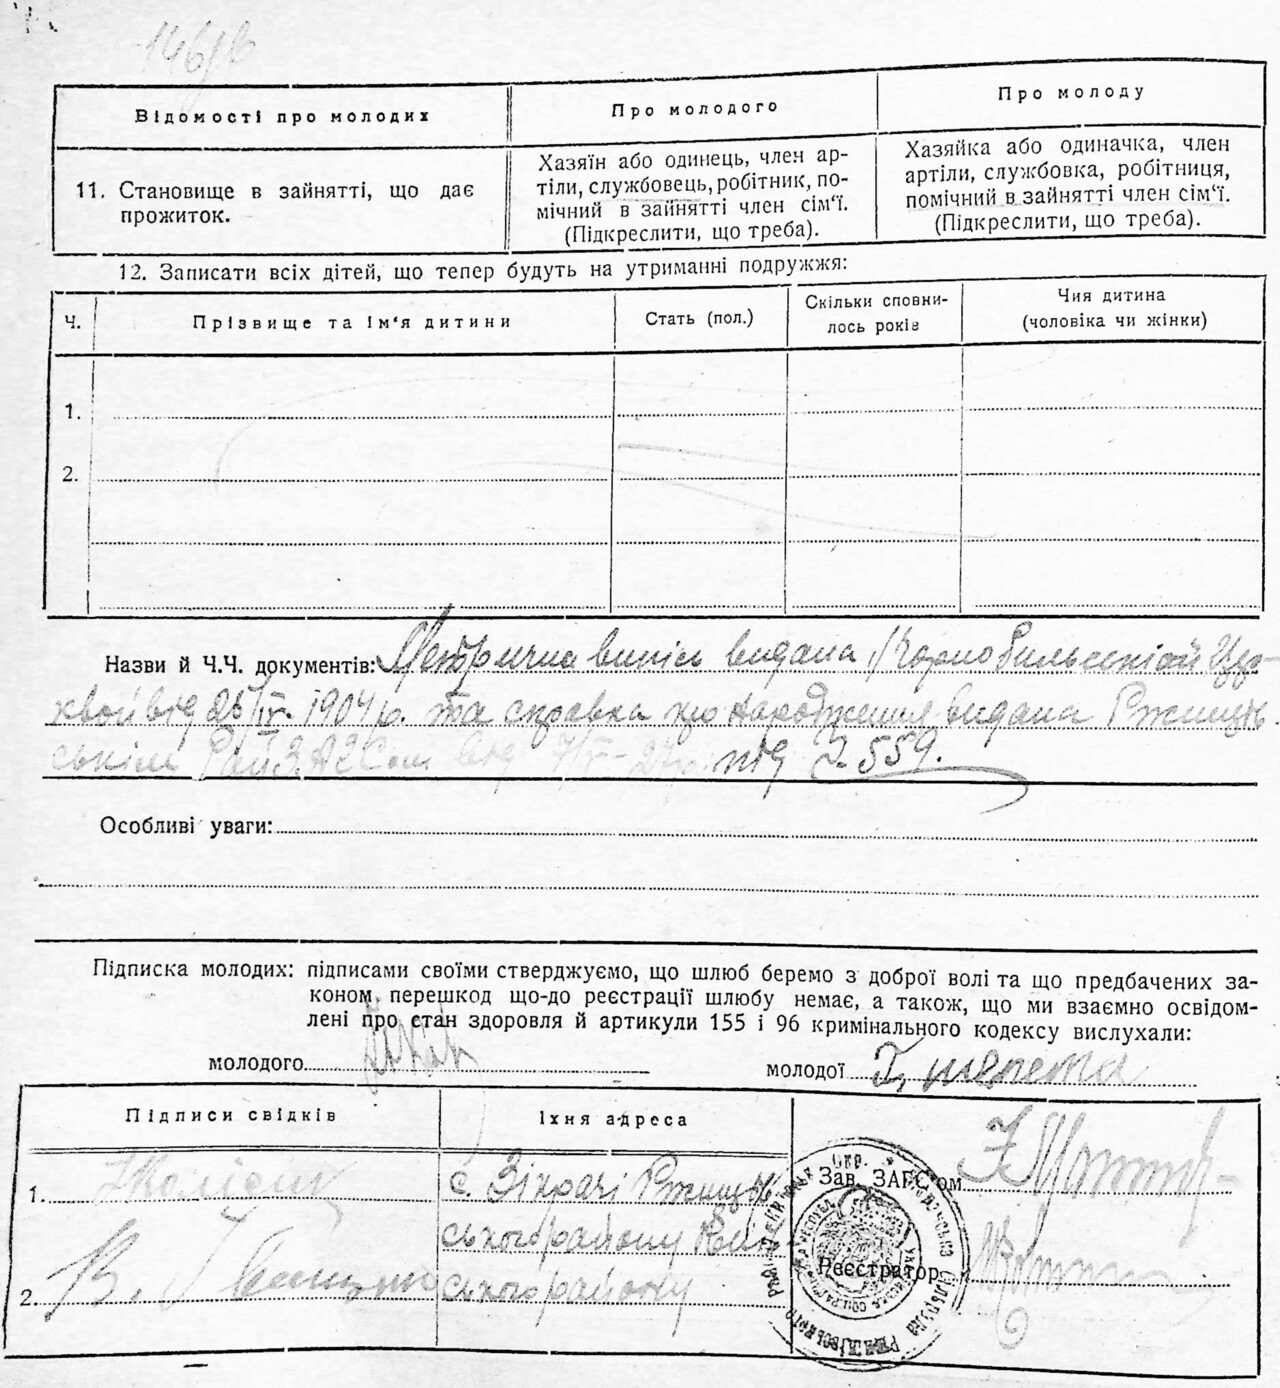 Відомості про молодих
Про молодого
Про молоду
11. Становище в зайнятті, що дає
прожиток.
Хазяїн або одинець, член ар-
тіли, службовець, робітник, по-
мічний в зайнятті член сім'ї.
(Підкреслити, що треба).
Хазяйка або одиначка, член
артіли, службовка, робітниця,
помічний в зайнятті член сім'ї.
(Підкреслити, що треба).
12. Записати всіх дітей, що тепер будуть на утриманні подружжя:
Ч.
Прізвище та ім'я дитини
Стать (пол.)
Скільки сповни-
лось років
Чия дитина
(чоловіка чи жінки)
1.
2.
Назви й Ч.Ч. документів: Метрична випись видана Чорнобильською Цер-
квой від 25/IV. 1904 р. та справка про народження видана Ржищів-
ським РайЗАГСом від 7/V-27 р. під 2559.
Особливі уваги:
Підписка молодих: підписами своїми стверджуємо, що шлюб беремо з доброї волі та що предбачених за-
коном, перешкод що-до реєстрації шлюбу немає, а також, що ми взаємно освідом-
лені про стан здоровля й артикули 155 і 96 кримінального кодексу вислухали:
молодого
молодої
Підписи свідків
Їхня адреса
1.
с. Зікрачі Ржищів-
ського району
Зав. ЗАГС'ом
Реєстратор
2. В.